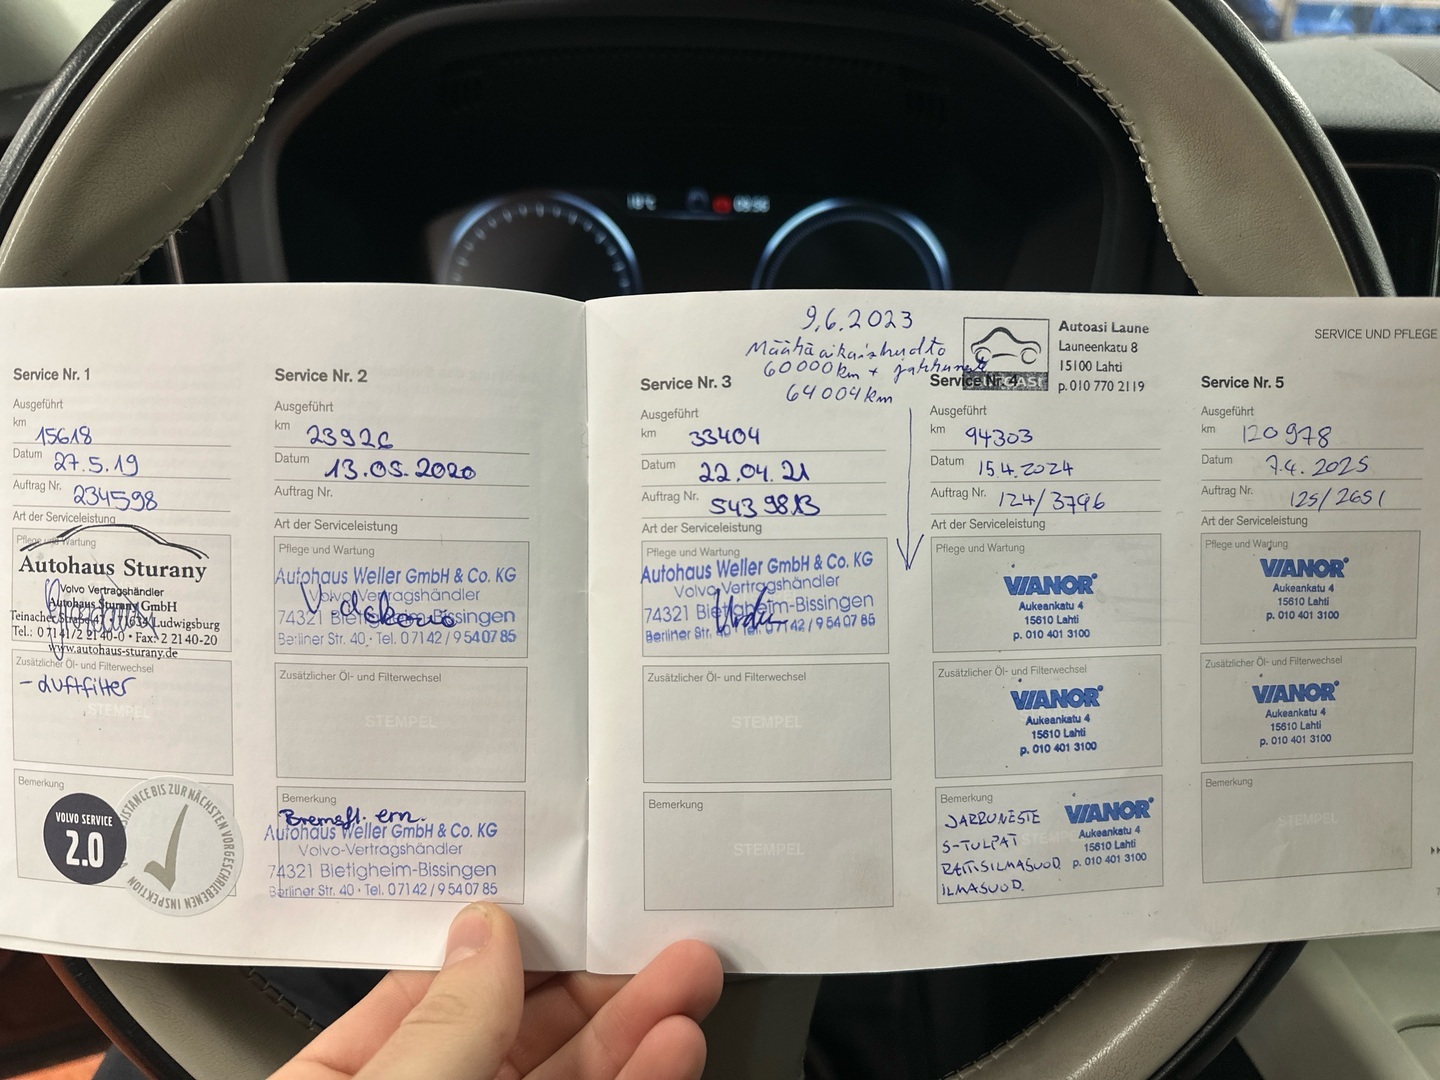 SERVICE UND PFLEGE
Service Nr. 1
Ausgeführt
km 15618
Datum 27.5.19
Auftrag Nr. 234598
Art der Serviceleistung
Pflege und Wartung
Autohaus Sturany
Volvo Vertragshändler
Autohaus Sturany GmbH
Ludwigsburg
Tel.: 0 71 41/2 21 40-0 • Fax: 2 21 40-20
www.autohaus-sturany.de
Zusätzlicher Öl- und Filterwechsel
- Luftfilter
STEMPEL
Bemerkung
VOLVO SERVICE
2.0
DISTANCE BIS ZUR NÄCHSTEN VORGESCHRIEBENEN INSPEKTION
Service Nr. 2
Ausgeführt
km 23926
Datum 13.05.2020
Auftrag Nr.
Art der Serviceleistung
Pflege und Wartung
Autohaus Weller GmbH & Co. KG
Volvo-Vertragshändler
74321 Bietigheim-Bissingen
Berliner Str. 40 · Tel. 0 71 42 / 9 54 07 85
Zusätzlicher Öl- und Filterwechsel
STEMPEL
Bemerkung
Bremsfl. ern.
Autohaus Weller GmbH & Co. KG
Volvo-Vertragshändler
74321 Bietigheim-Bissingen
Berliner Str. 40 · Tel. 0 71 42 / 9 54 07 85
Service Nr. 3
Ausgeführt
km 33404
Datum 22.04.21
Auftrag Nr. 5439813
Art der Serviceleistung
Pflege und Wartung
Autohaus Weller GmbH & Co. KG
Volvo-Vertragshändler
74321 Bietigheim-Bissingen
Berliner Str. 40 · Tel. 0 71 42 / 9 54 07 85
Zusätzlicher Öl- und Filterwechsel
STEMPEL
Bemerkung
STEMPEL
9.6.2023
Määräaikaishuolto
60000km +
64004km
Autoasi Laune
Launeenkatu 8
15100 Lahti
p. 010 770 2119
Service Nr. 4
Ausgeführt
km 94303
Datum 15.4.2024
Auftrag Nr. 124/3796
Art der Serviceleistung
Pflege und Wartung
VIANOR
Aukeankatu 4
15610 Lahti
p. 010 401 3100
Zusätzlicher Öl- und Filterwechsel
VIANOR
Aukeankatu 4
15610 Lahti
p. 010 401 3100
Bemerkung
JARRUNESTE
S-TULPAT
RAITISILMASUOD.
ILMASUOD.
VIANOR
Aukeankatu 4
15610 Lahti
p. 010 401 3100
Service Nr. 5
Ausgeführt
km 120978
Datum 7.4.2025
Auftrag Nr. 125/2651
Art der Serviceleistung
Pflege und Wartung
VIANOR
Aukeankatu 4
15610 Lahti
p. 010 401 3100
Zusätzlicher Öl- und Filterwechsel
VIANOR
Aukeankatu 4
15610 Lahti
p. 010 401 3100
Bemerkung
STEMPEL